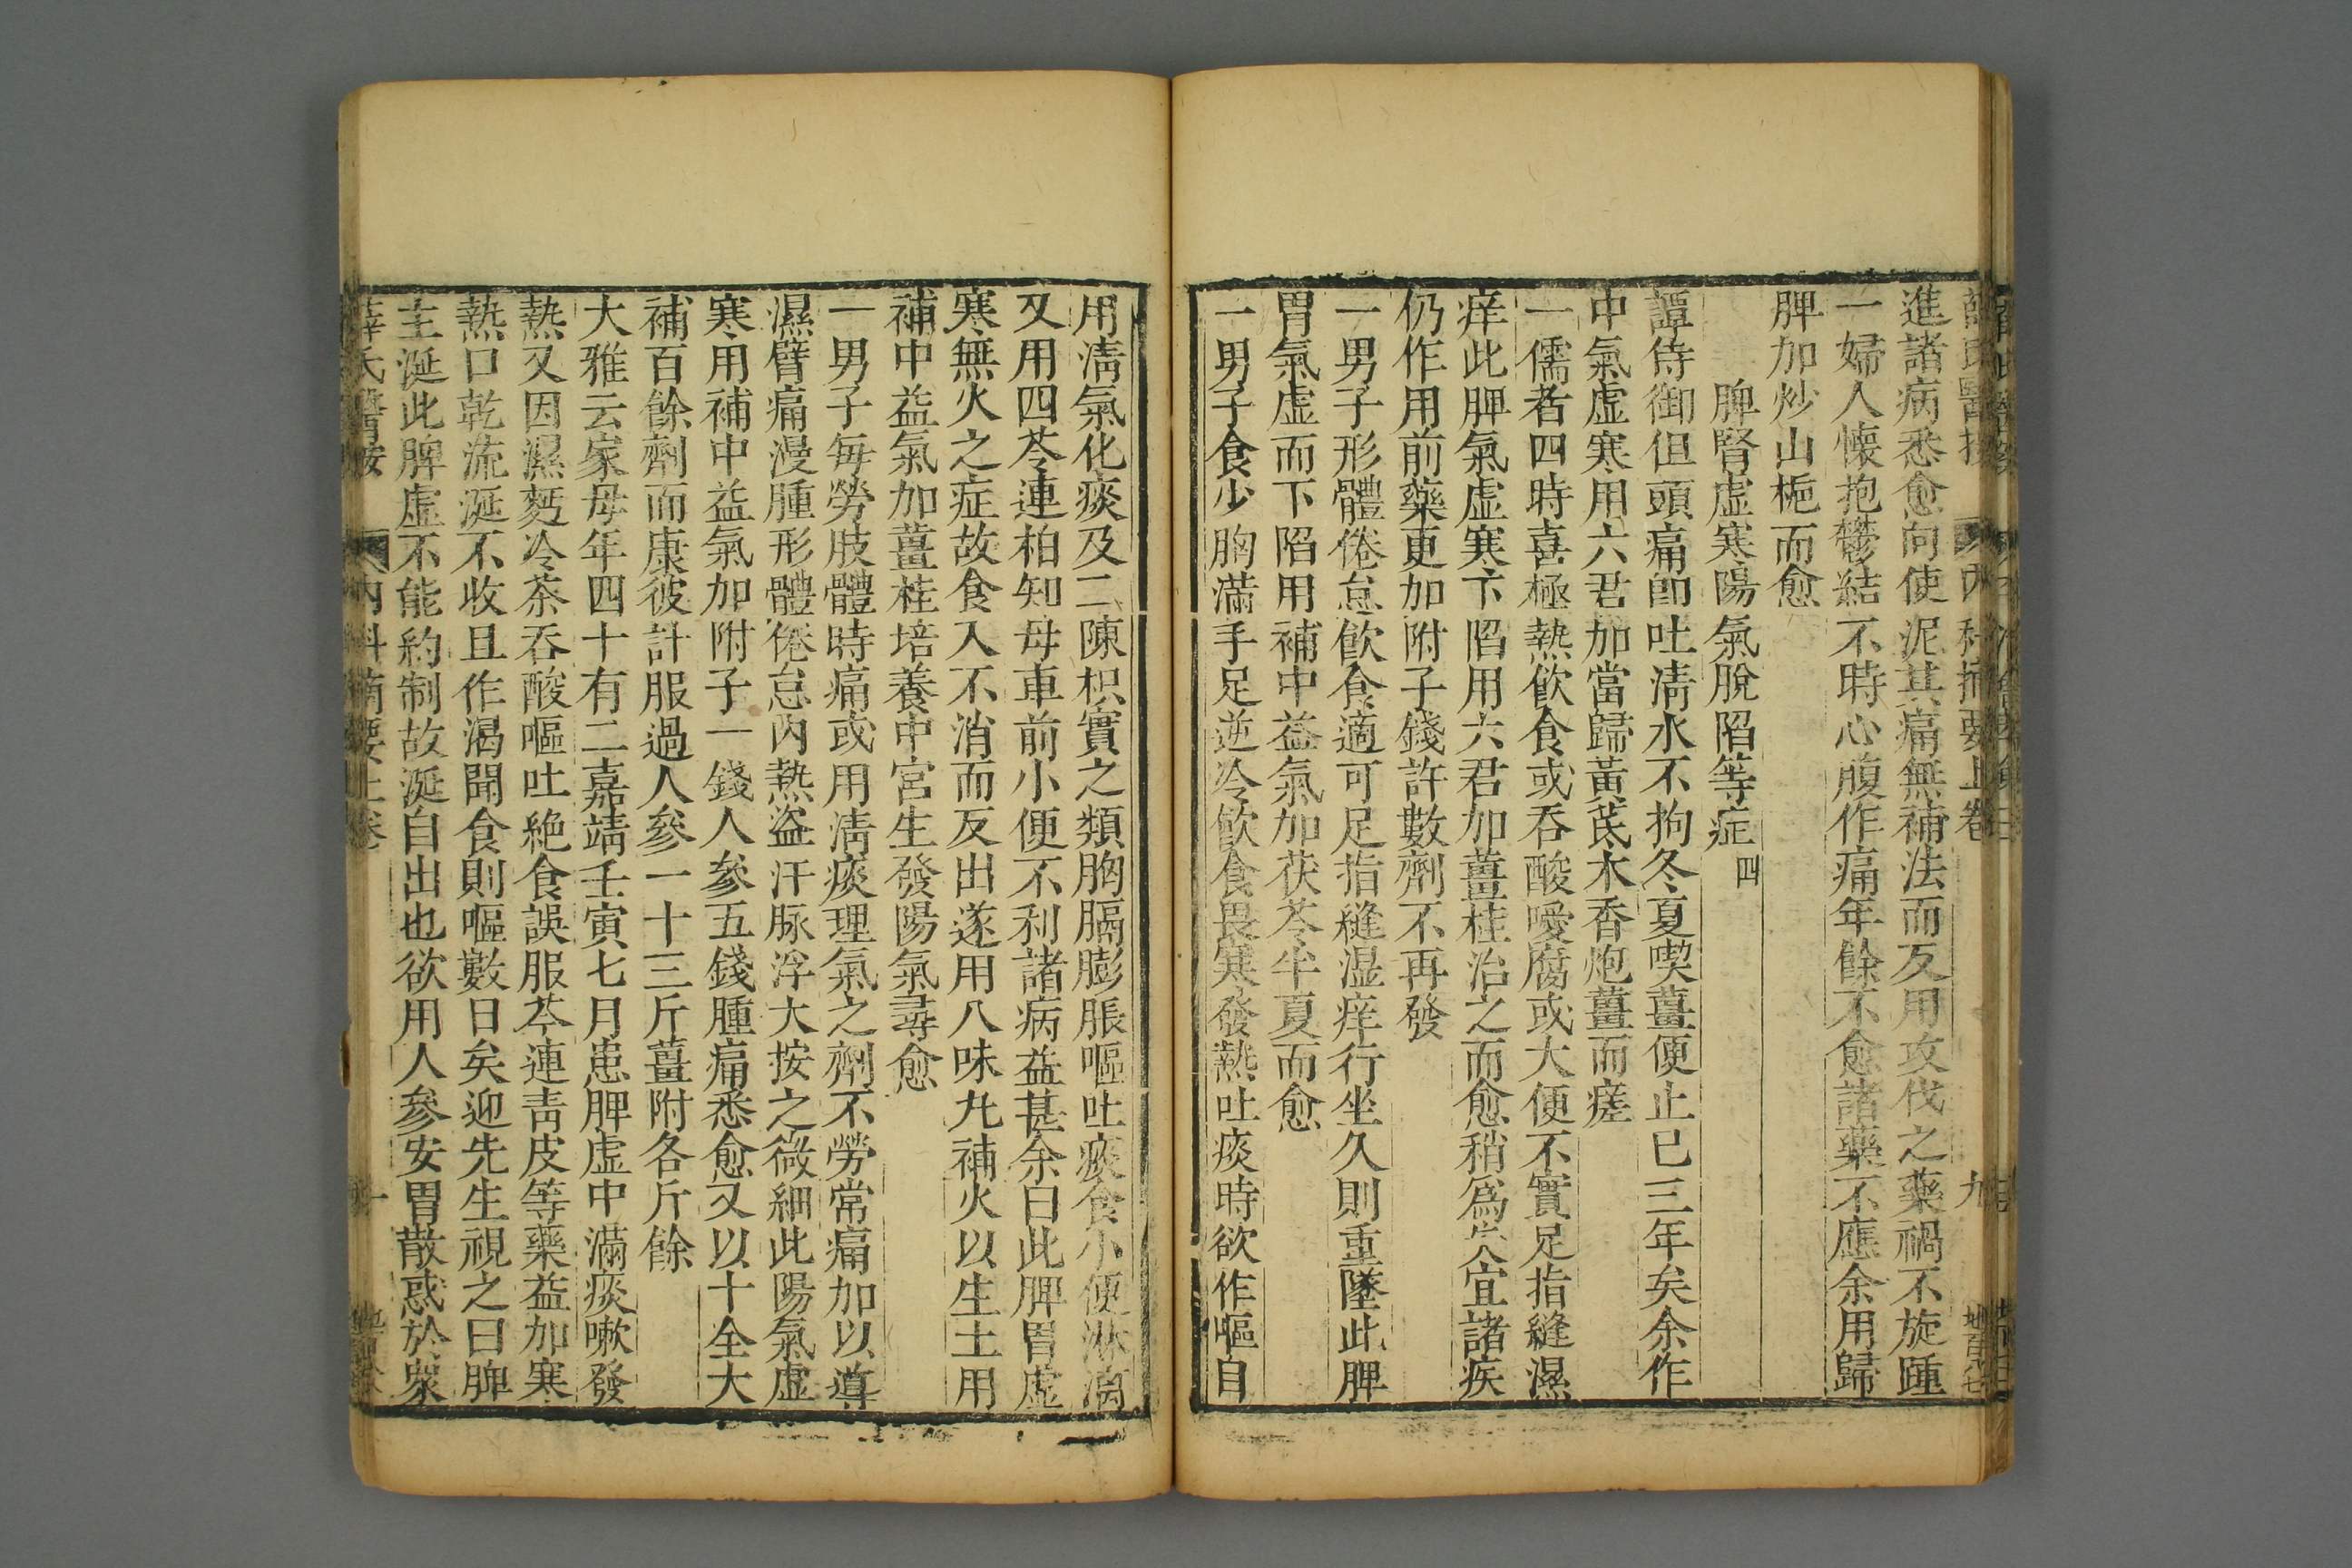 薛氏醫按 內科摘要上卷 九
進諸病悉愈向使泥其痛無補法而反用攻伐之藥禍不旋踵
一婦人懷抱鬱結不時心腹作痛年餘不愈諸藥不應余用歸
脾加炒山梔而愈
脾腎虛寒陽氣脫陷等症四
譚侍御但頭痛卽吐淸水不拘冬夏喫薑便止已三年矣余作
中氣虛寒用六君加當歸黃芪木香炮薑而瘥
一儒者四時喜極熱飮食或吞酸噯腐或大便不實足指縫濕
痒此脾氣虛寒下陷用六君加薑桂治之而愈稍爲失宜諸疾
仍作用前藥更加附子錢許數劑不再發
一男子形體倦怠飮食適可足指縫湿痒行坐久則重墜此脾
胃氣虛而下陷用補中益氣加茯苓半夏而愈
一男子食少胸滿手足逆冷飮食畏寒發熱吐痰時欲作嘔自
用淸氣化痰及二陳枳實之類胸膈膨脹嘔吐痰食小便淋滴
又用四苓連柏知母車前小便不利諸病益甚余曰此脾胃虛
寒無火之症故食入不消而反出遂用八味丸補火以生土用
補中益氣加薑桂培養中宮生發陽氣尋愈
一男子每勞肢體時痛或用淸痰理氣之劑不勞常痛加以導
濕臂痛漫腫形體倦怠內熱盜汗脉浮大按之微細此陽氣虛
寒用補中益氣加附子一錢人參五錢腫痛悉愈又以十全大
補百餘劑而康彼計服過人參一十三斤薑附各斤餘
大雅云家母年四十有二嘉靖壬寅七月患脾虛中滿痰嗽發
熱又因濕麪冷茶吞酸嘔吐絕食誤服芩連靑皮等藥益加寒
熱口乾流涎不收且作渴聞食則嘔數日矣迎先生視之曰脾
主涎此脾虛不能約制故涎自出也欲用人參安胃散惑於衆
薛氏醫按 內科摘要上卷 十